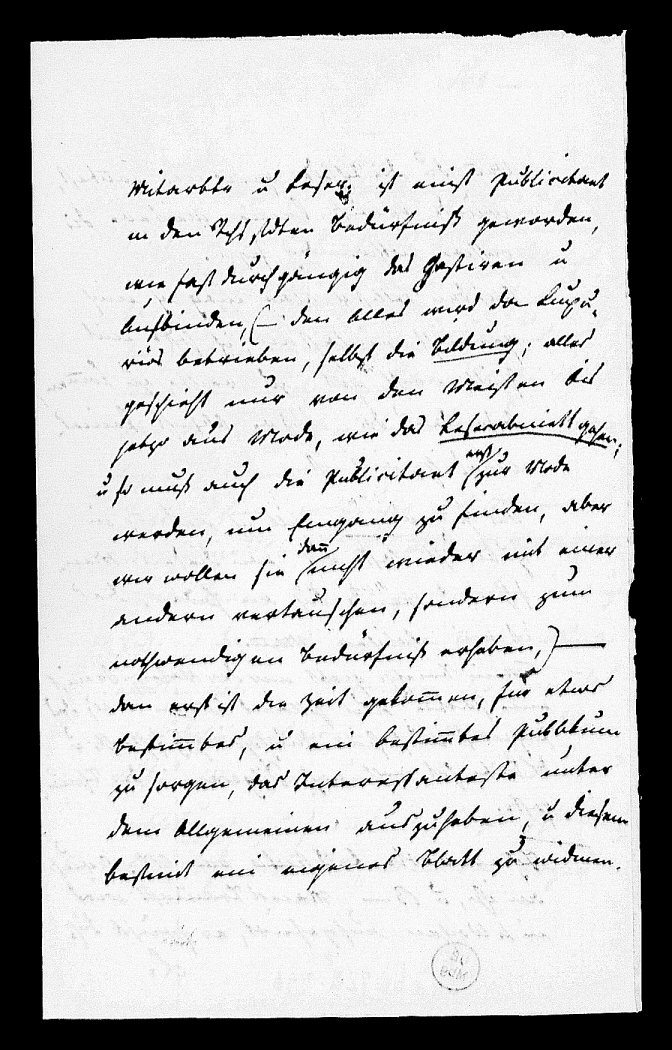 Mitarbtr u Leser, ist einst Publicitaet
in den Schſtdten Bedürfniß geworden,
wie fast durchgängig das Gastiren u
Aufbinden, (– den Alles wird da
riös betrieben, selbst die Bildung; alles
geschieht nur von den Meisten bis
jetzo aus Mode, wie das Lesecabinett gehen;
u so muß auch die Publicitaet erst zur Mode
werden, um Eingang zu finden, aber
wir wollen sie dann nicht wieder mit einer
andern vertauschen, sondern zum
nothwendigen Bedürfniß erheben,) –
dan erst ist die Zeit gekom̄en, für etwas
bestim̄tes, u ein bestim̄tes Publikum
zu sorgen, das Interessanteste unter
dem Allgemeinen auszuheben, u diesem
bestimt ein eigenes Blatt zu widmen.